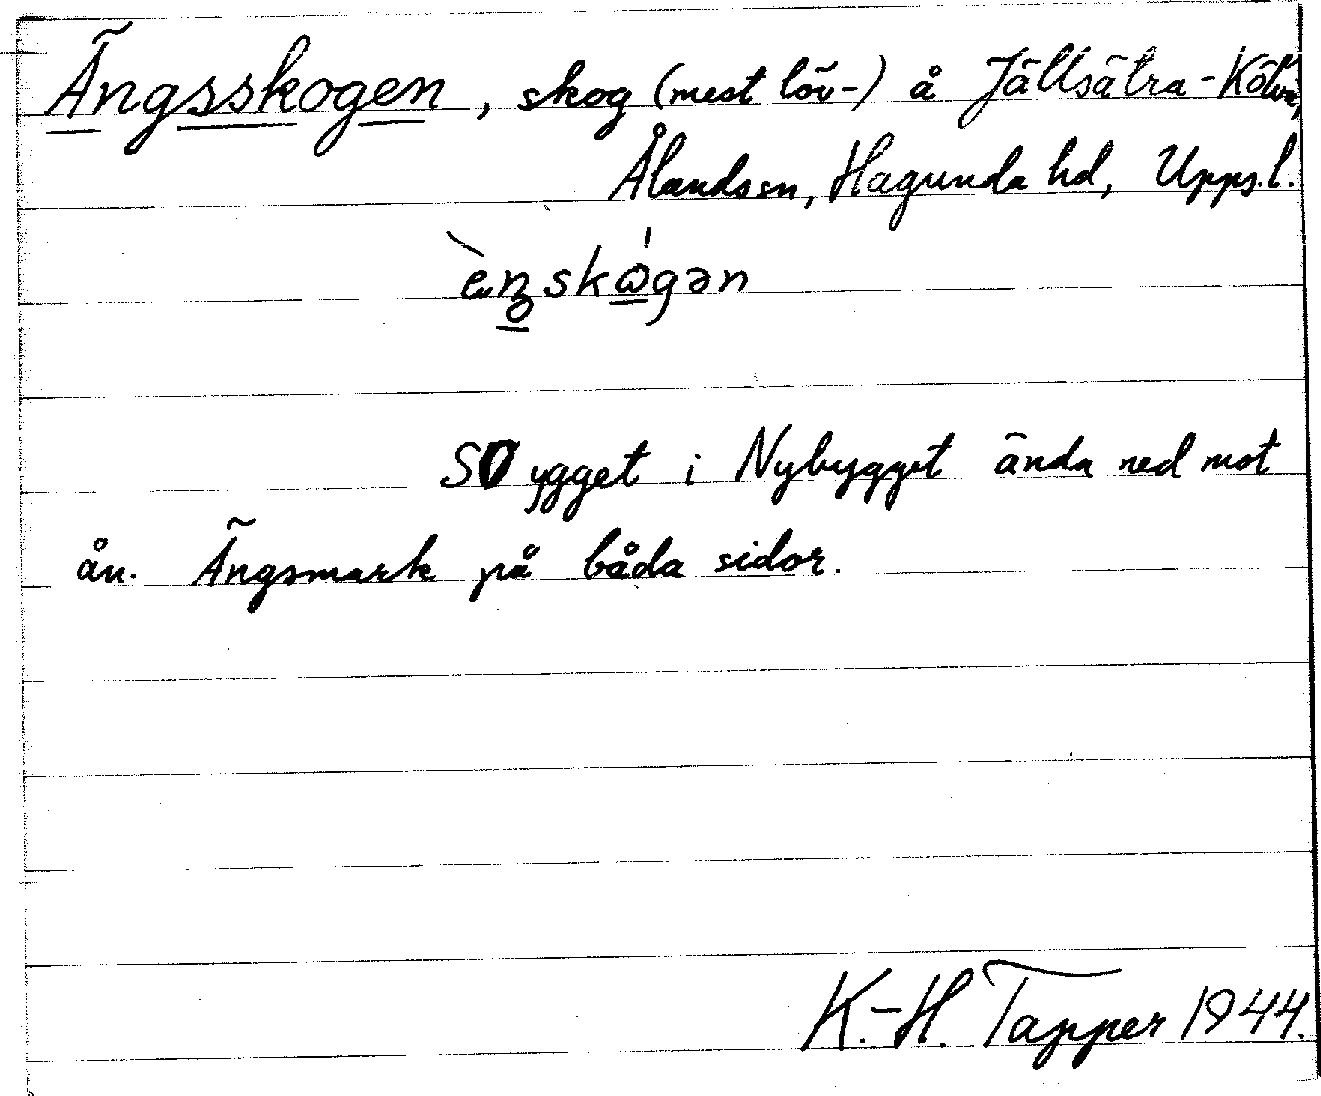 Ängsskogen, skog (mest löv-) å Jällsätra-Kölva,
Ålands sn, Hagunda hd, Upps. l.
ènskógən
SO ygget i Nybygget ända ned mot
ån. Ängsmark på båda sidor.
K.-H. Tapper 1944.